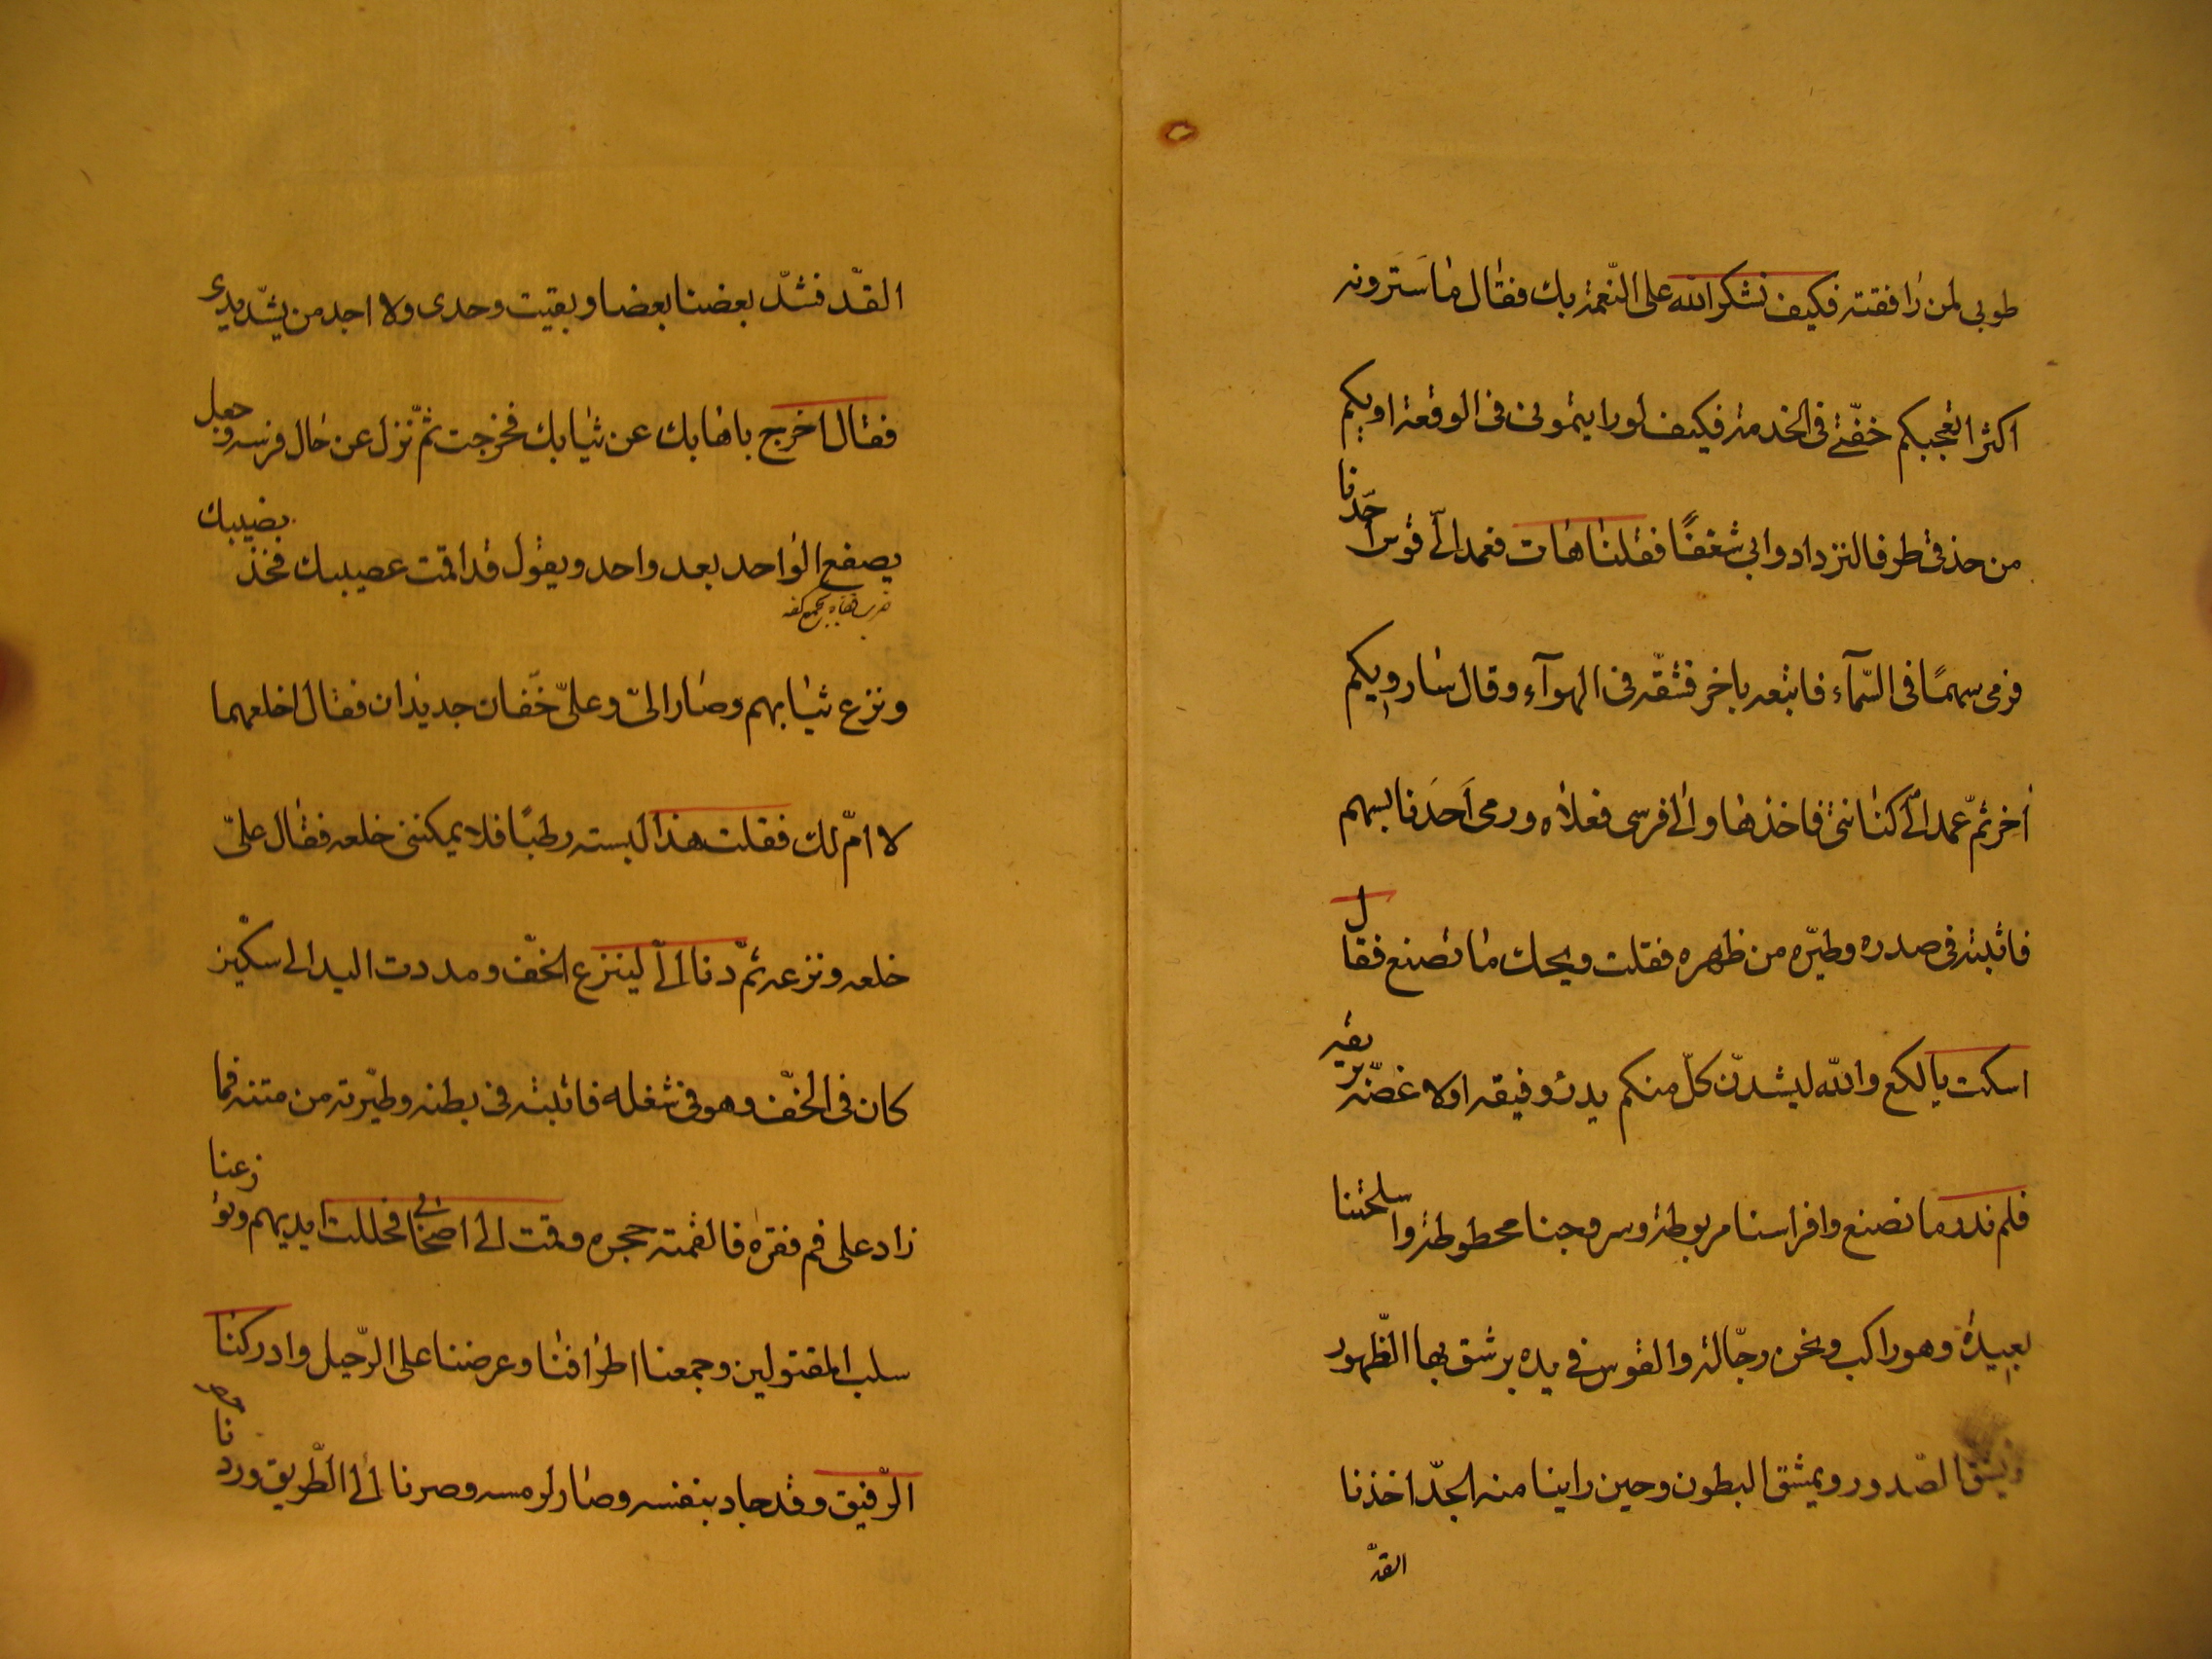 طوبى لمن رافقته فكيف نشكر الله على النّعمة بك فقال ما سَترونه
اكثر اتعجبكم خفّتى فى الخدمة فكيف لو رايتمونى فى الوقعة اريكم
من حذقى طرفا لتزدادوا بى شغفًا فقلنا هات فعمد الى قوس احدنا
فرمى سهمًا فى السّمآء فاتبعه باخر فشقّه فى الهوآء وقال ساريكم
اخر ثمّ عمد الى كنانتى فاخذها والى فرسى فعلاه ورمى اَحَدنا بسهم
فاثبته فى صدره وطيّره من ظهره فقلت ويحك ما تصنع فقال
اسكت يالكع والله ليشدنّ كلّ منكم يد رفيقه اولاغصّنّه بريقه
فلم ندر ما نصنع وافراسنا مربوطة وسروجنا محطوطة واسلحتنا
بعيدة وهو راكب ونحن رجّالة والقوس فى يده يرشق بها الظّهور
ويشق الصّدور ويمشق البطون وحين راينا منه الجدّ اخذنا
القدّ
القدّ فشدّ بعضنا بعضا وبقيت وحدى ولا اجد من يشدّ يدى
فقال اخرج باهابك عن ثيابك فخرجت ثمّ نزل عن حال فرسه وجعل
يصفع الواحد بعد واحد ويقول قد اقمت عصيبك فخذ بضيبك
ضرب قفاه بجمع كفه
ونزع ثيابهم وصار الىّ وعلىّ خفّان جديدان فقال اخلعهما
لا امّ لك فقلت هذا لبسته رطبًا فلا يمكننى خلعه فقال علىّ
خلعه ونزعه ثمّ دنا الىّ لينزع الخفّ ومددت اليد الى سكّين
كان فى الخفّ وهو فى شغله فاثبته فى بطنه وطيّرته من متنه فما
زاد على فم فغره فالقمته حجره وقمت الى اصحابى فحللت ايديهم وتوزعنا
سلب المقتولين وجمعنا اطرافنا وعرضنا على الرّحيل وادركنا
الرّفيق وقد جاد بنفسه وصار لرمسه وصرنا الى الطّريق ووردنا